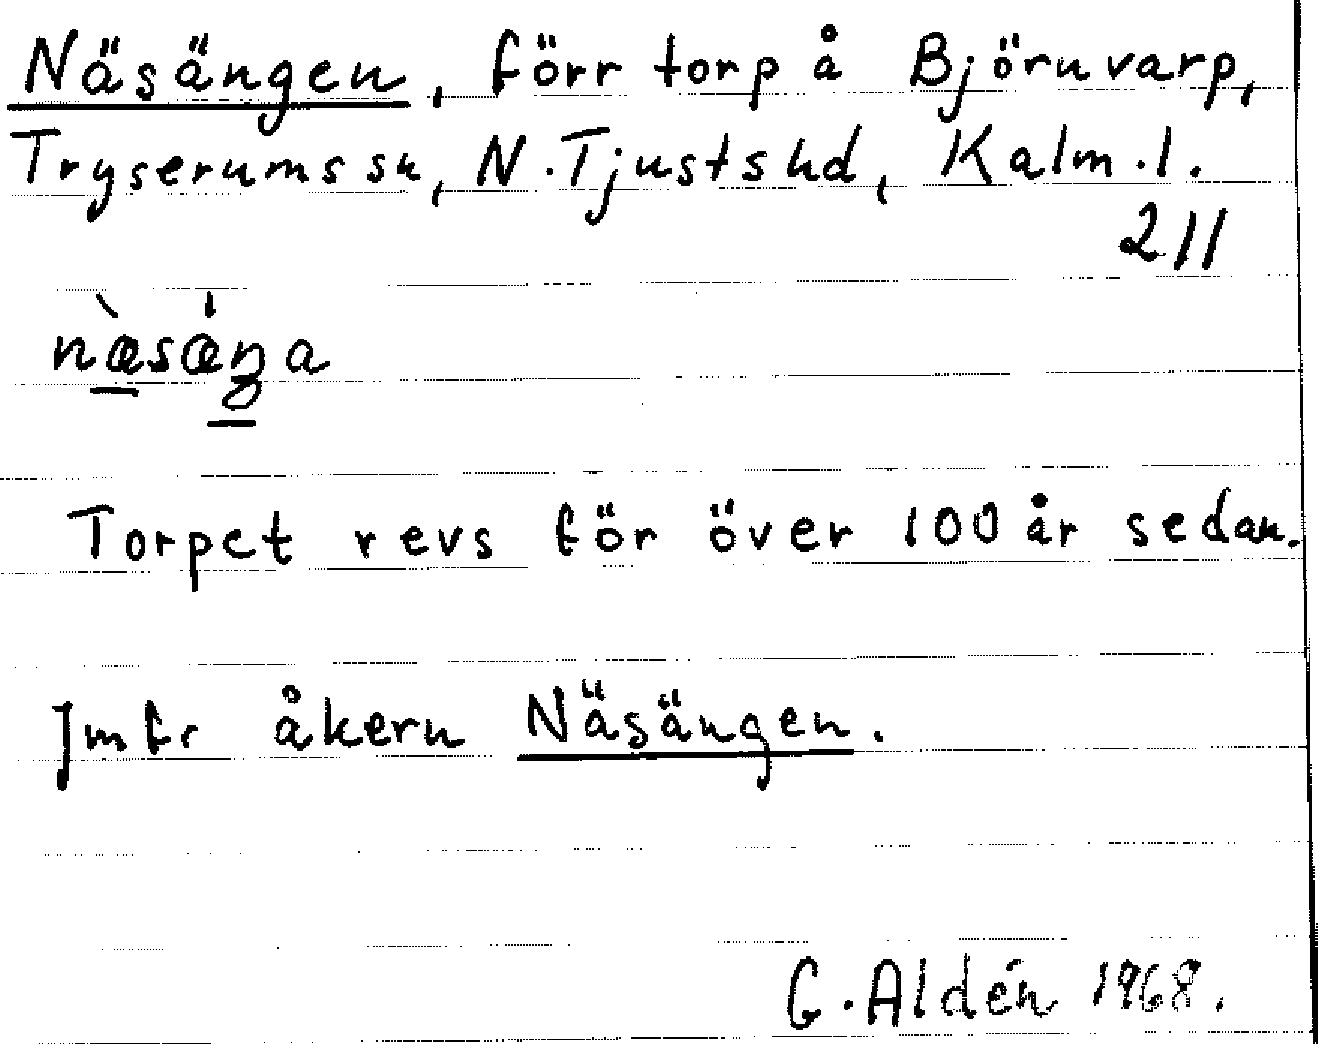 Näsängen, förr torp å Björnvarp,
Tryserums sn, N. Tjusts hd, Kalm. l.
211
næ̀sæ̍ŋa
Torpet revs för över 100 år sedan.
Jmfr åkern Näsängen.
G. Aldén 1968.